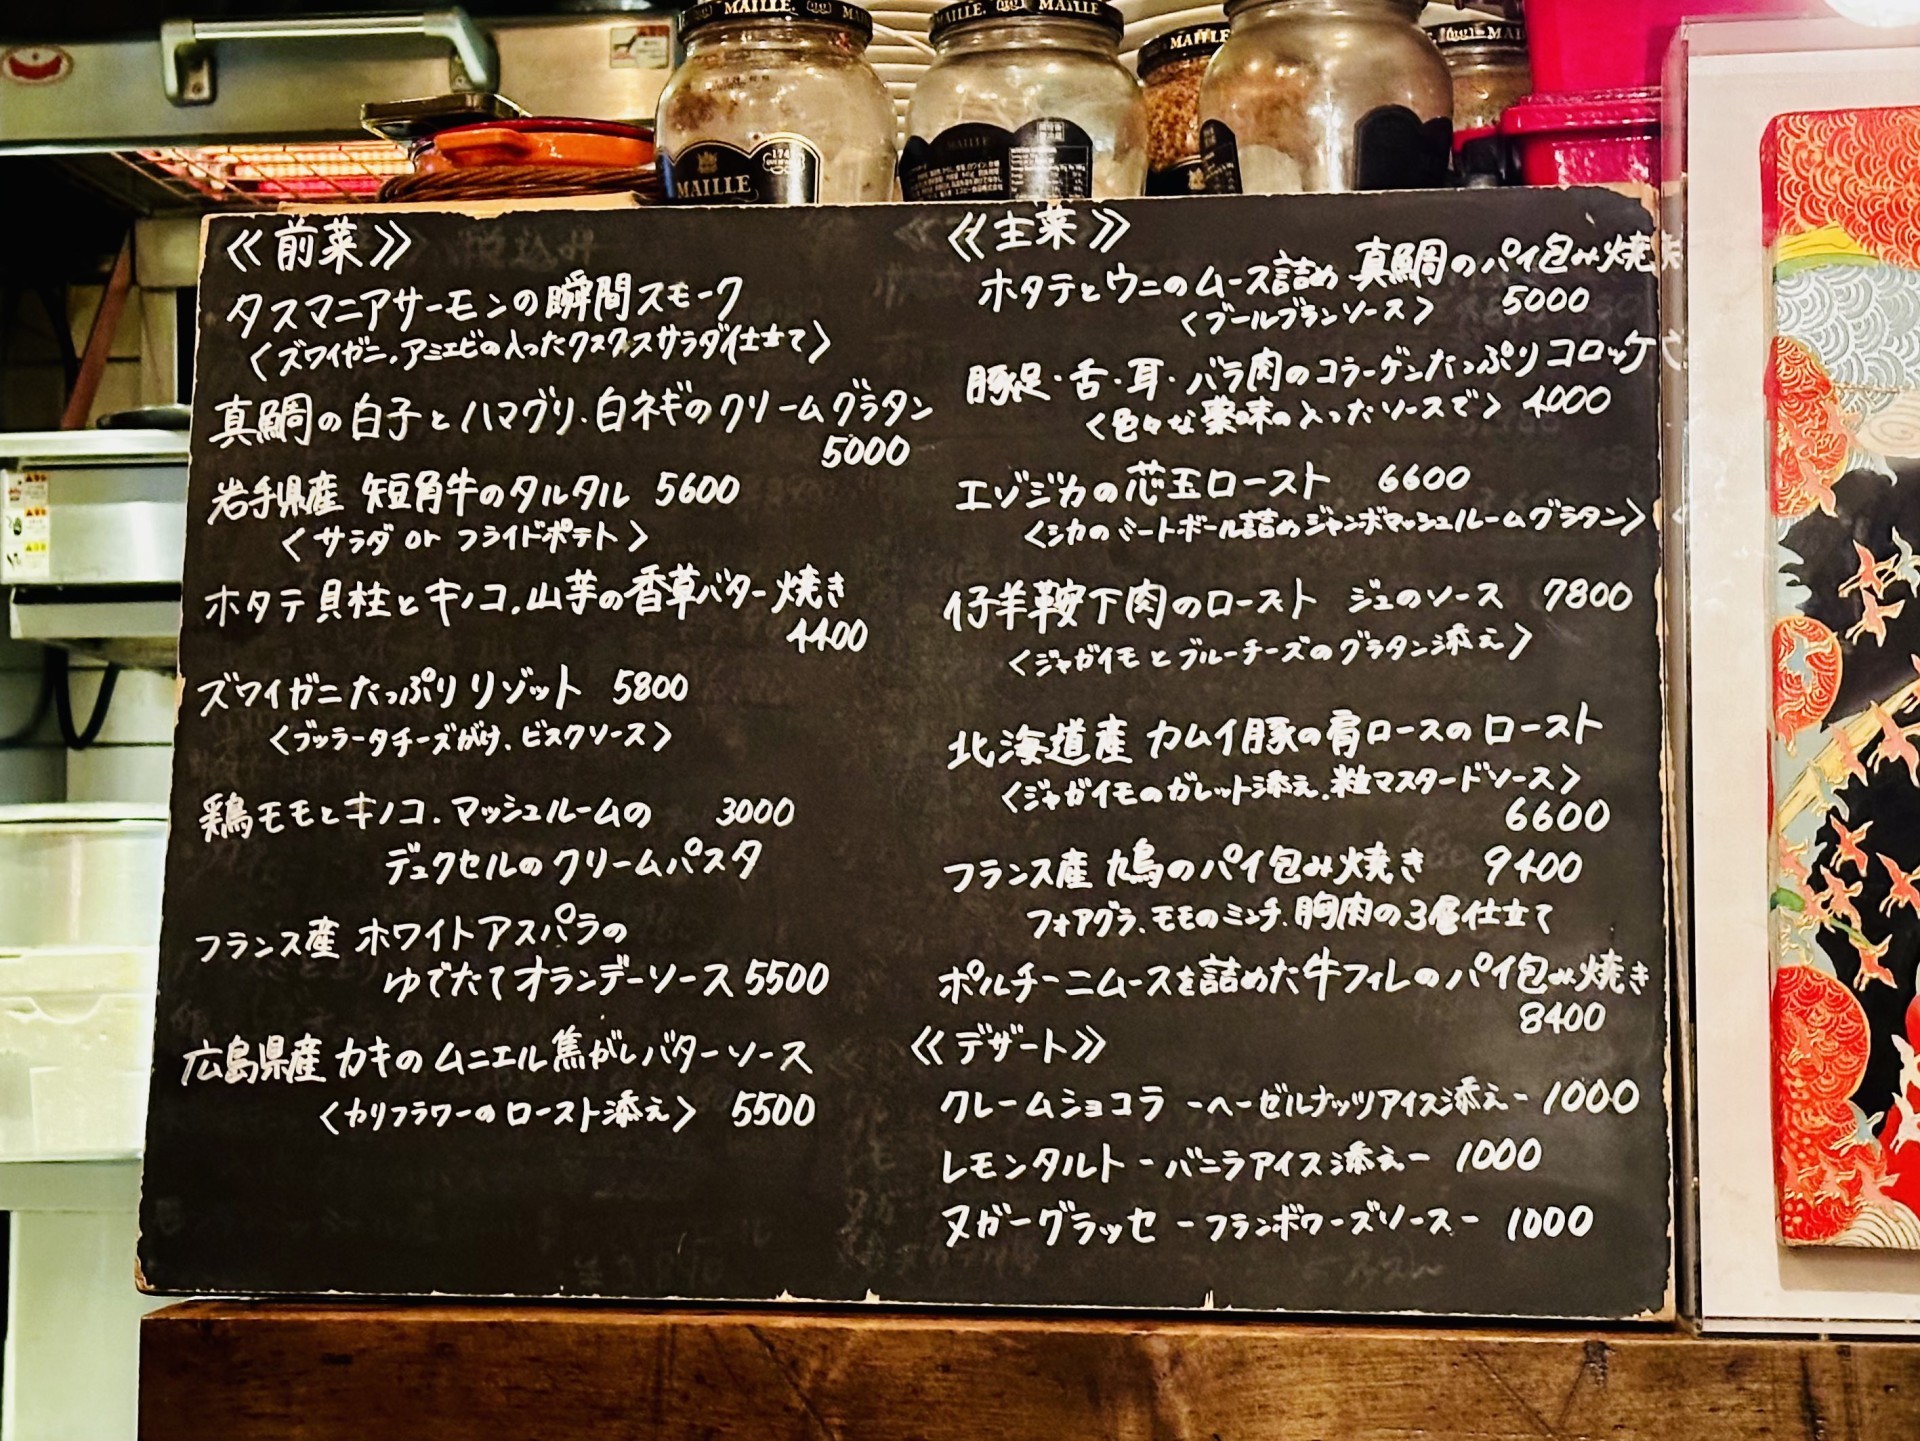 MAILLE
MAILLE
MAILLE
MAILLE
MAILLE
MAILLE
《前菜》
タスマニアサーモンの瞬間スモーク
〈ズワイガニ、アミエビの入ったクスクスサラダ仕立て〉
真鯛の白子とハマグリ、白ネギのクリームグラタン
5000
岩手県産 短角牛のタルタル 5600
〈サラダ or フライドポテト〉
ホタテ貝柱とキノコ、山芋の香草バター焼き
4400
ズワイガニたっぷりリゾット 5800
〈ブッラータチーズがけ、ビスクソース〉
鶏モモとキノコ、マッシュルームの 3000
デュクセルのクリームパスタ
フランス産 ホワイトアスパラの
ゆでたてオランデーソース 5500
広島県産 カキのムニエル焦がしバターソース
〈カリフラワーのロースト添え〉 5500
《主菜》
ホタテとウニのムース詰め 真鯛のパイ包み焼き
〈ブールブランソース〉 5000
豚足・舌・耳・バラ肉のコラーゲンたっぷりコロッケ
〈色々な薬味の入ったソースで〉 4000
エゾジカの芯玉ロースト 6600
〈シカのミートボール詰めジャンボマッシュルームグラタン〉
仔羊鞍下肉のロースト ジュのソース 7800
〈ジャガイモとブルーチーズのグラタン添え〉
北海道産 カムイ豚の肩ロースのロースト
〈ジャガイモのガレット添え、粒マスタードソース〉
6600
フランス産 鳩のパイ包み焼き 9400
フォアグラ、モモのミンチ、胸肉の3層仕立て
ポルチーニムースを詰めた牛フィレのパイ包み焼き
8400
《デザート》
クレームショコラ -ヘーゼルナッツアイス添え- 1000
レモンタルト -バニラアイス添え- 1000
ヌガーグラッセ -フランボワーズソース- 1000